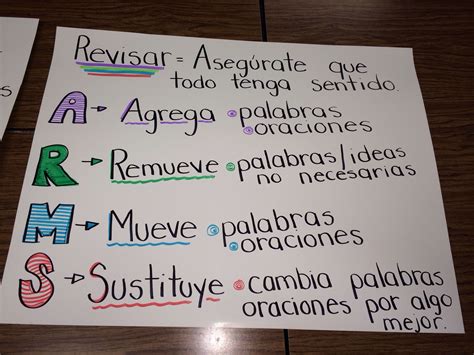 Revisar = Asegúrate que
todo tenga sentido.
A → Agrega • palabras
• oraciones
R → Remueve • palabras/ideas
no necesarias
M → Mueve • palabras
• oraciones
S → Sustituye • cambia palabras
oraciones por algo
mejor.
s